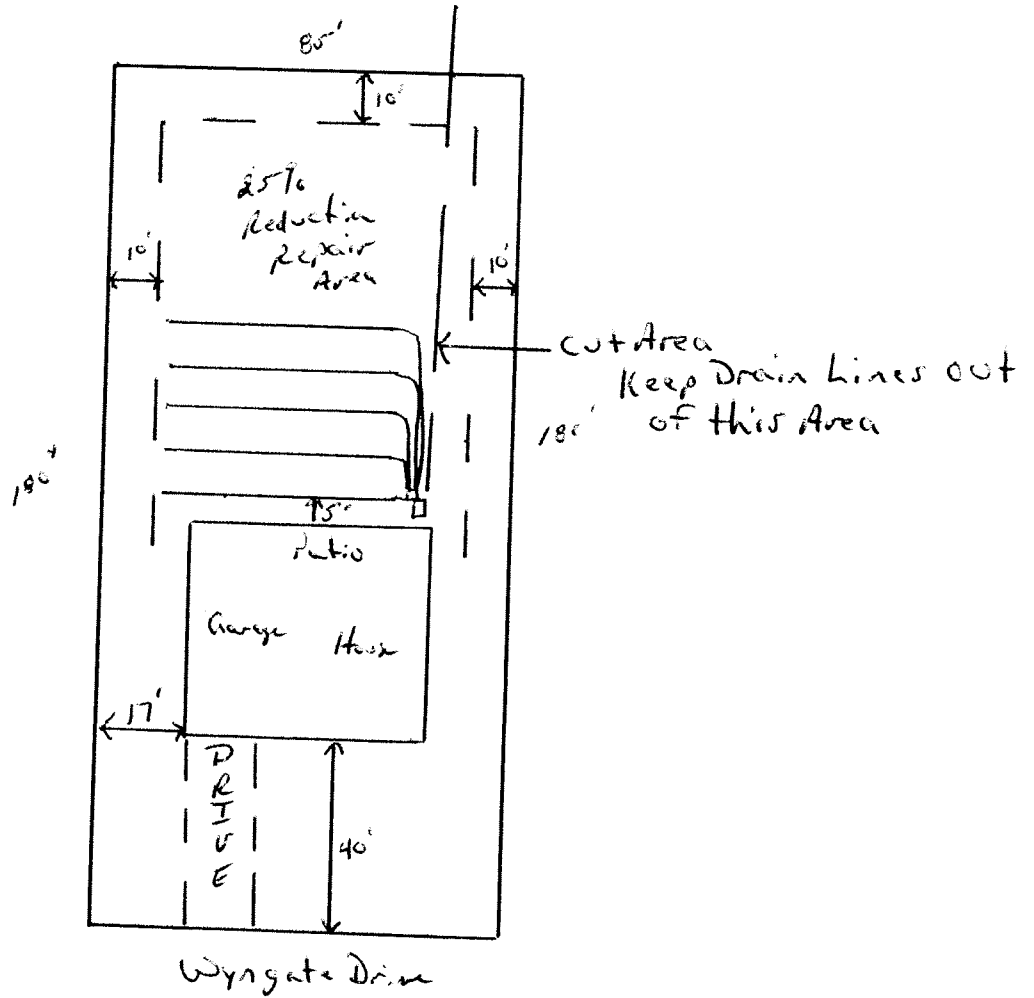 85'
10'
25%
Reduction
Repair
Area
10'
10'
Cut Area
Keep Drain Lines out
of this Area
180'
180'
5'
Patio
Garage
House
17'
DRIVE
40'
Wyngate Drive